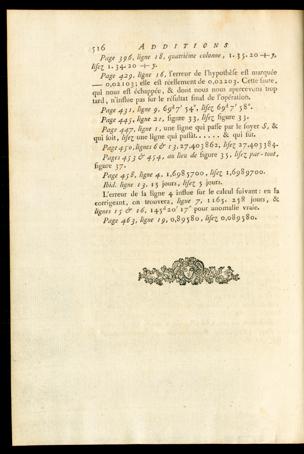 516 ADDITIONS
Page 396, ligne 18, quatrième colonne, 1. 35. 20 + y,
lisez 1. 34. 20 + y.
Page 429, ligne 16, l'erreur de l'hypothèse est marquée
— 0,02103; elle est réellement de 0,02203. Cette faute,
qui nous est échappée, & dont nous nous apercevons trop
tard, n'influe pas sur le résultat final de l'opération.
Page 431, ligne 9, 69d 7' 54", lisez 69d 7' 58".
Page 445, ligne 21, figure 33, lisez figure 33.
Page 447, ligne 1, une ligne qui passe par le foyer S, &
qui soit, lisez une ligne qui passât..... & qui fût.
Page 450, lignes 6 & 13, 27,403862, lisez 27,403384.
Pages 453 & 454, au lieu de figure 35, lisez par-tout,
figure 37.
Page 458, ligne 4, 1,6985700, lisez 1,6989700.
Ibid. ligne 13, 15 jours, lisez 5 jours.
L'erreur de la ligne 4 influe sur le calcul suivant: en la
corrigeant, on trouvera, ligne 7, 1163. 258 jours, &
lignes 15 & 16, 145d 20' 17" pour anomalie vraie.
Page 463, ligne 19, 0,89580, lisez 0,089580.